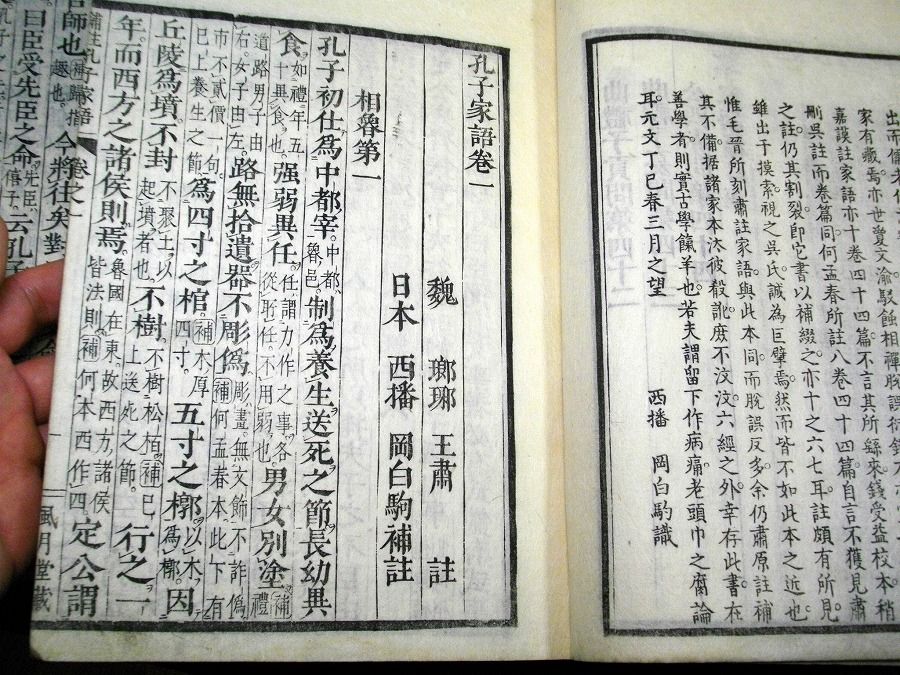 家有藏焉亦世愛文渝駁蝕相禪脫誤
嘉謨註家語亦十卷四十四篇不言其所繇來錢受益校本稍
刪吳註而卷篇同何孟春所註八卷四十四篇自言不獲見肅
之註仍其割裂卽它書以補綴之亦十之六七耳註頗有所見
雖出于摸索視之吳氏誠為巨擘焉然而皆不如此本之近也
惟毛晉所刻肅註家語與此本同而脫誤反多余仍肅原註補
其不備據諸家本汰彼殽訛庶不汶汶六經之外幸存此書在
善學者則實古學餼羊也若夫謂留下作病痛老頭巾之腐論
耳元文丁巳春三月之望
西播 岡白駒識
孔子家語卷一
魏 瑯琊 王肅 註
日本 西播 岡白駒補註
相魯第一
孔子初仕爲中都宰中都魯邑制爲養生送死之節長幼異
食如禮年五十異食也强弱異任任謂力作之事各從所任不用弱也男女別塗補禮
道路男子由右女子由左路無拾遺器不彫僞補彫畫無文飾不詐僞何孟春本此下有
市不貳價一句已上養生之節爲四寸之棺補木厚四寸五寸之槨以木爲槨因
丘陵爲墳不封不聚土以起墳者也不樹不樹松柏補已上送死之節行之一
年而西方之諸侯則焉魯國在東故西方諸侯皆法則補何本西作四定公謂
補註孔子家語 卷之一 風月堂藏
官師也補歸 趣也今將往矣對
曰臣受先臣之命先臣僖子云孔